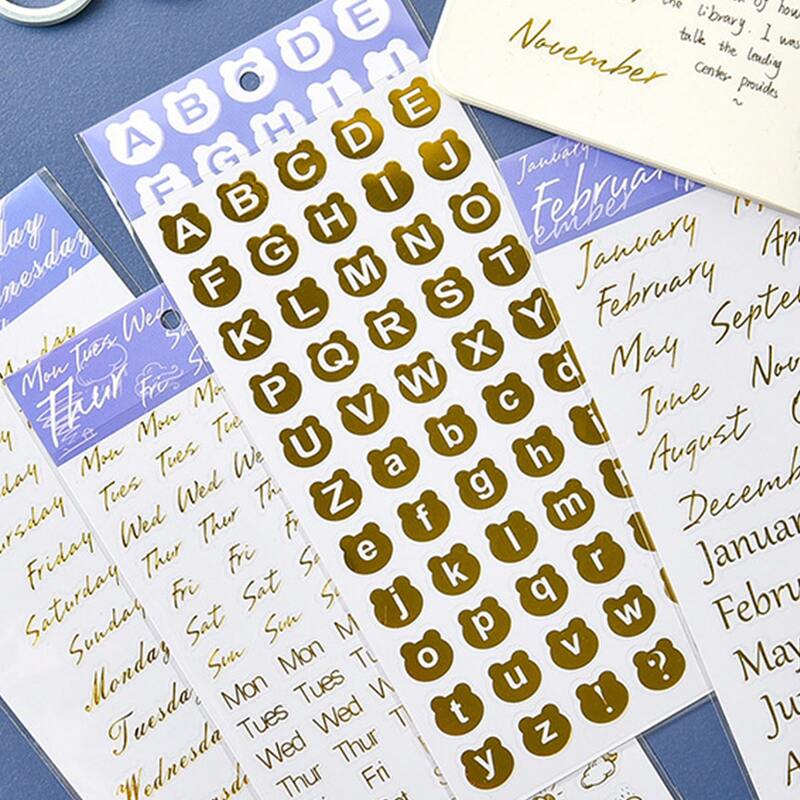 of how
the library. I was
talk the leading
center provides
~
November
A B C D E
F G H I J
A B C D E
F G H I J
K L M N O
P Q R S T
U V W X Y
Z a b c d
e f g h i
j k l m
o p q r
t u v w
y z ! ?
January
February
January
February
May Septe
June Nov
August
Decemb
Januar
Febru
May
Ju
Mon Tues Wed
Thur Fri
Mon Mon Mo
Tues Tues Tue
Wed Wed We
Thur Thur Th
Fri Fri
Sat Sat
Sun Sun
Mon Mon M
Tues Tues
Wed Wed
Thur Thur
Fri
day
nesday
day
ursday
Friday
Saturday
Sunday
Monday
Tuesday
Wednesday